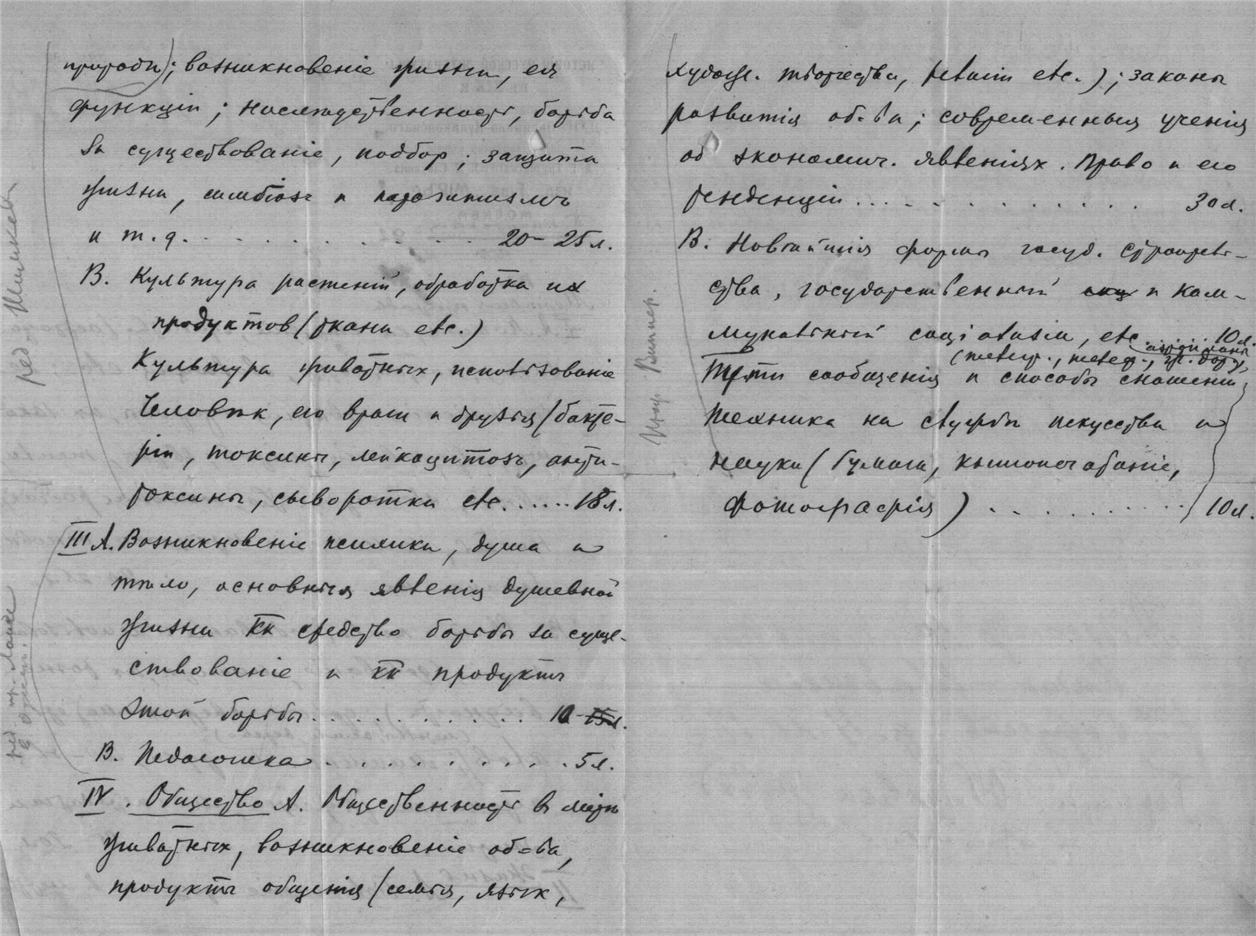 природы); возникновеніе жизни, ея
функціи; наслѣдственность, борьба
за существованіе, подбор; защита
жизни, симбіозъ и паразитизмъ
и т. д. . . . . . . . . . . . . 20 – 25 л.
В. Культура растеній, обработка их
продуктов (ткани etc.)
Культура животных, использованіе
Человѣк, его враги и друзья (бакте-
ріи, токсины, лейкоцитозъ, анти-
токсины, сыворотки etc. . . . . . 18 л.
III А. Возникновеніе психики, душа и
тѣло, основныя явленія душевной
жизни кк средство борьбы за суще-
ствованіе и кк продуктъ
этой борьбы . . . . . . . . . . 10 – 15 л.
В. Педагогика . . . . . . . . . . 5 л.
IV. Общество А. Общественность в мірѣ
животных, возникновеніе об-ва,
продукты общенія (семья, язык,
ред.
ред. пр.
художе. творчества, религіи etc.); законы
развитія об-ва; современныя ученія
об экономич. явленіях. Право и его
тенденціи . . . . . . . . . . . . 30 л.
В. Новѣйшія формы госуд. строитель-
ства, государственный и ком-
мунальный соціализм, etc . . . 10 л.
(телеф., телегр., жел. дор.)
Пути сообщенія и способы сношеній
Техника на службѣ искусства и
науки (бумага, книгопечатаніе,
фотографія) . . . . . . . . . . 10 л.
Виппер.